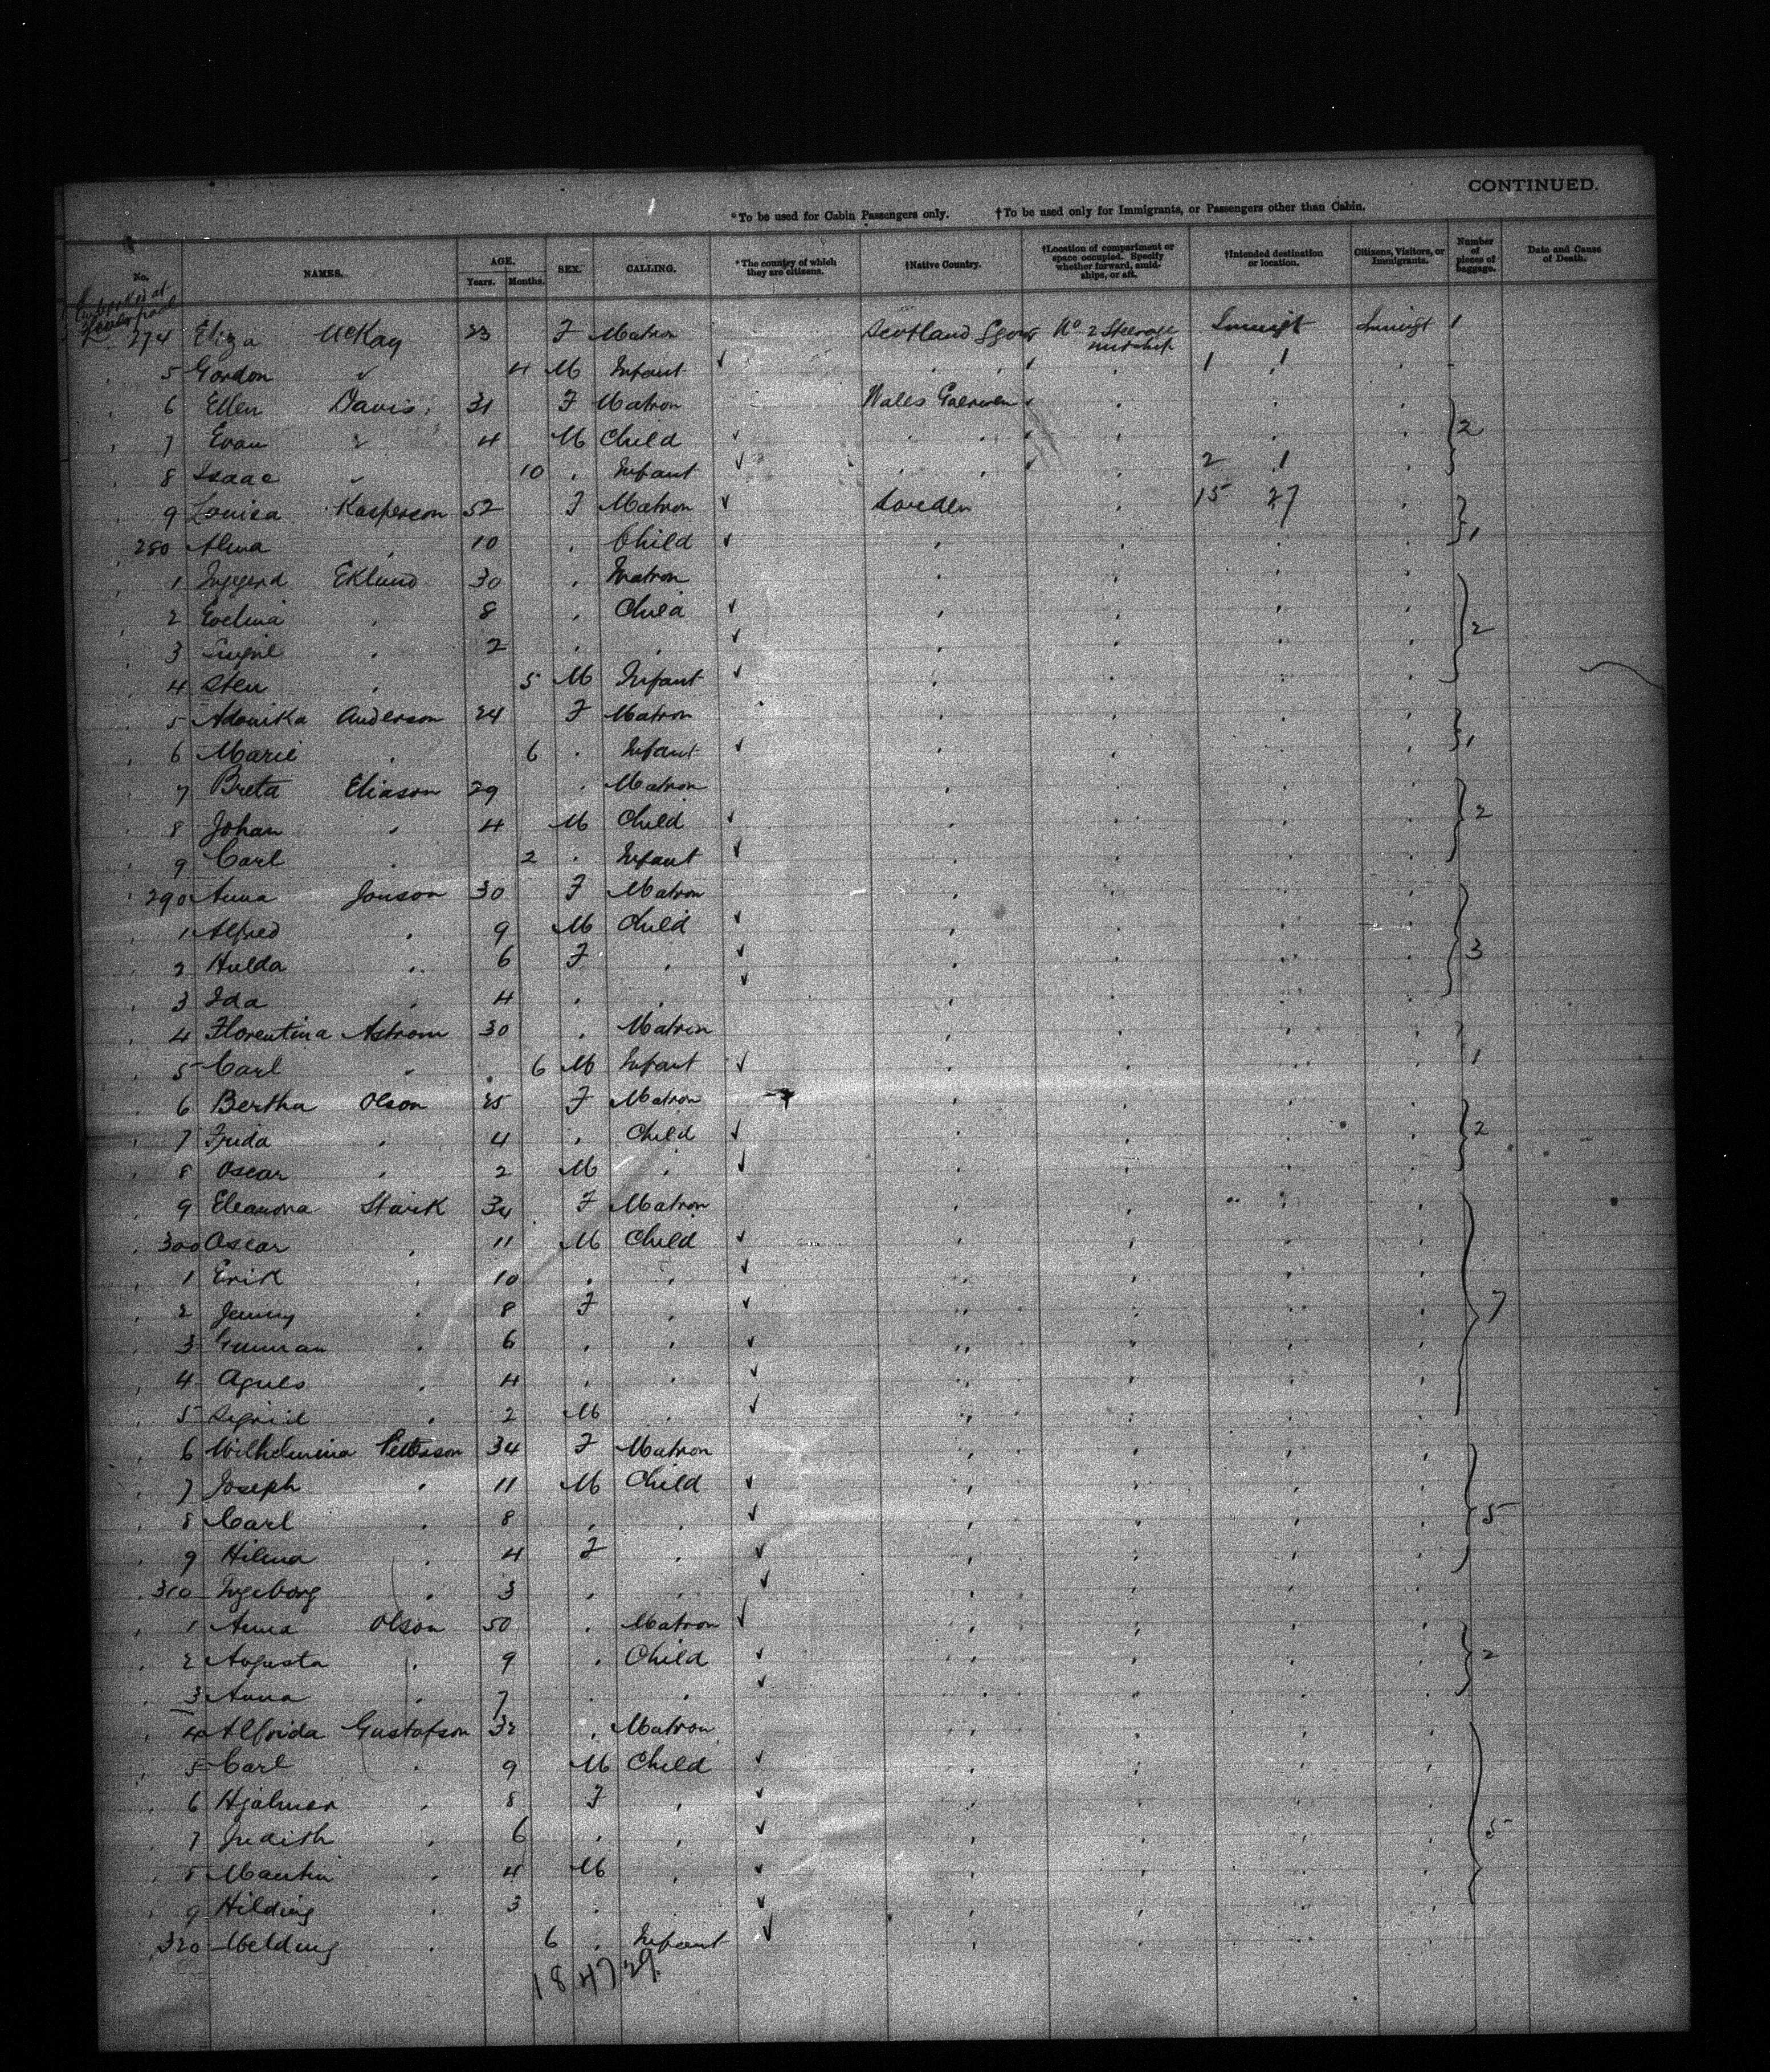 CONTINUED.
*To be used for Cabin Passengers only. †To be used only for Immigrants, or Passengers other than Cabin.
No. NAMES. AGE. Years. Months. SEX. CALLING. *The country of which they are citizens. †Native Country. †Location of compartment or space occupied. Specify whether forward, amidships, or aft. †Intended destination or location. Citizens, Visitors, or Immigrants. Number of pieces of baggage. Date and Cause of Death.
Embarked at
Liverpool
274 Eliza McKay 23 F Matron Scotland No 2 Steerage midship 1
5 Gordon 4 M Infant ✓ 1 1
6 Ellen Davis 31 F Matron Wales
7 Evan 4 M Child ✓ 2
8 Isaac 10 Infant ✓ 2 1
9 Louisa Kasperson 52 F Matron ✓ Sweden 15 27
280 Alma 10 Child ✓ 1
1 Ingegerd Eklund 30 Matron
2 Evelina 8 Child ✓ 2
3 2 ✓
4 Sten 5 M Infant ✓
5 Anderson 24 F Matron
6 Marie 6 Infant ✓ 1
7 Breta Eliason 29 Matron
8 Johan 4 M Child ✓ 2
9 Carl 2 Infant ✓
290 Anna Jonson 30 F Matron
1 Alfred 9 M Child ✓
2 Hulda 6 F ✓ 3
3 Ida 4 ✓
4 Florentina Astrom 30 Matron
5 Carl 6 M Infant ✓ 1
6 Bertha Olson 25 F Matron
7 Frida 4 Child ✓ 2
8 Oscar 2 M ✓
9 Eleanora Stark 34 F Matron
300 Oscar 11 M Child ✓
1 Erik 10 ✓
2 Jenny 8 F ✓ 7
3 6 ✓
4 Agnes 4 ✓
5 2 M ✓
6 Wilhelmina Petterson 34 F Matron
7 Joseph 11 M Child ✓
8 Carl 8 ✓ 5
9 Hilma 4 F ✓
310 Ingeborg 3 ✓
1 Anna Olson 50 Matron ✓
2 Augusta 9 Child ✓ 2
3 Anna 7 ✓
4 Alfrida Gustafson 32 Matron
5 Carl 9 M Child ✓
6 Hjalmer 8 F ✓
7 Judith 6 ✓ 5
8 Martin 4 M ✓
9 Hilding 3 ✓
320 Melding 6 Infant ✓
18 47 29